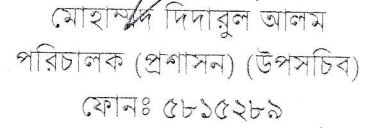 মোহাম্মদ দিদারুল আলম
পরিচালক (প্রশাসন) (উপসচিব)
ফোনঃ ৫৮১৫২৮৯